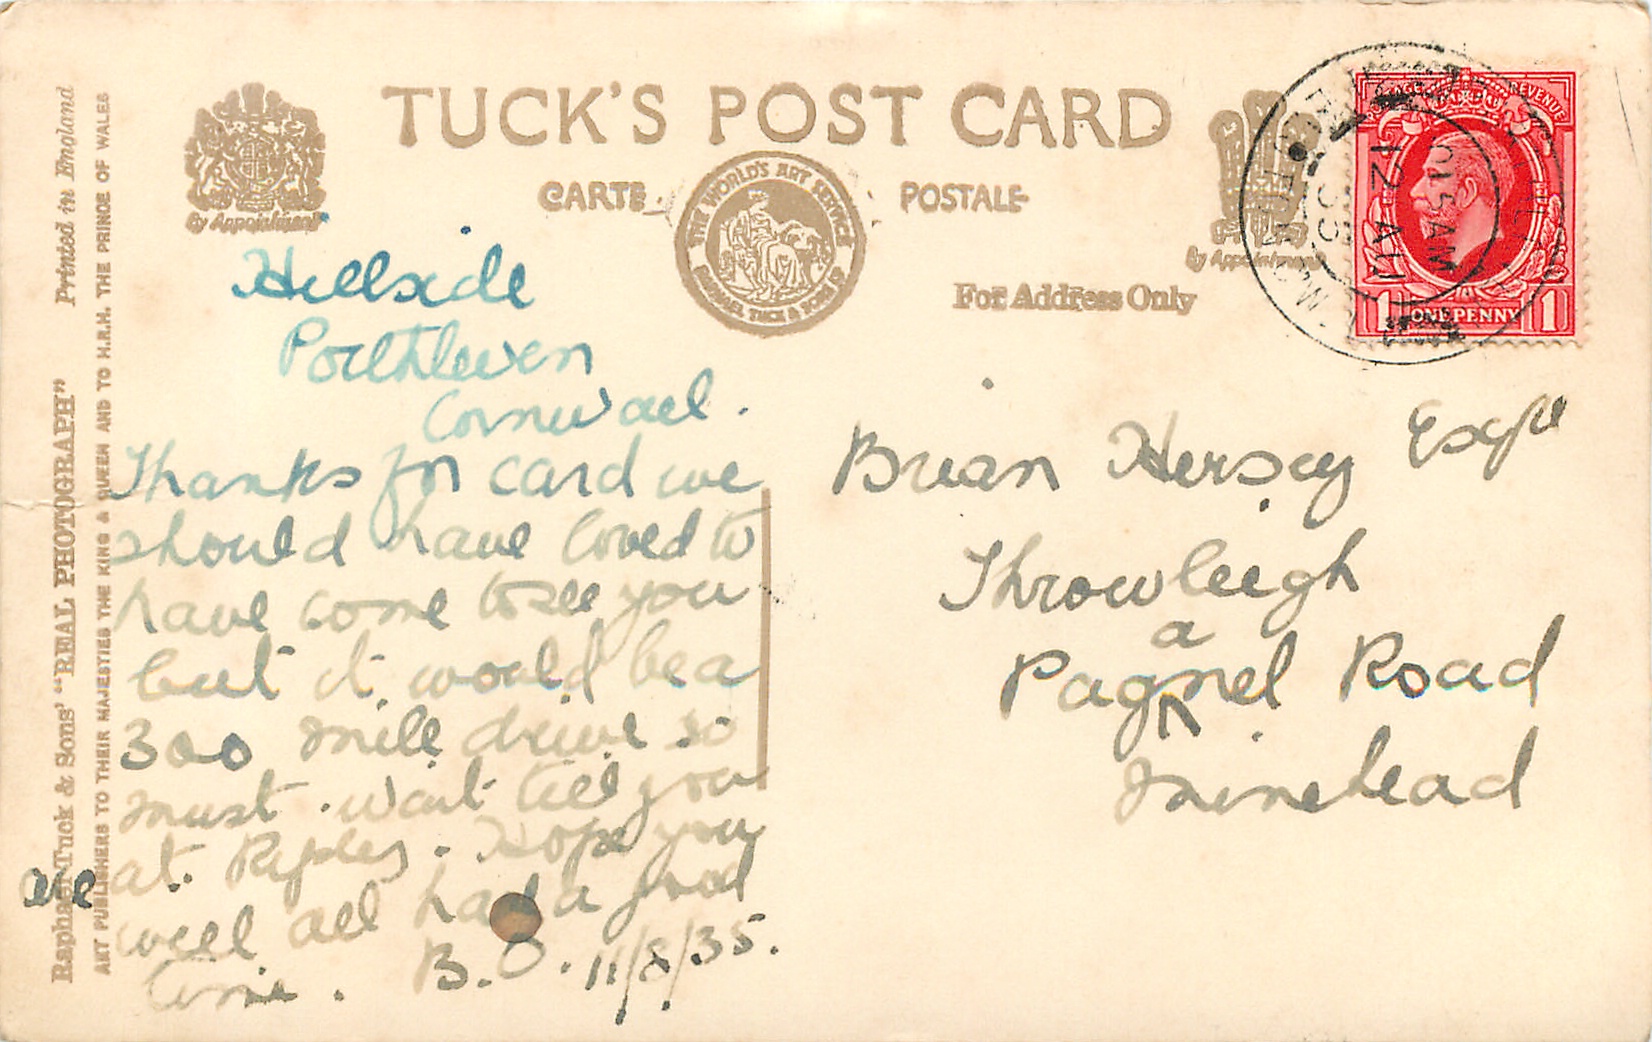 TUCK'S POST CARD
CARTE POSTALE
By Appointment
THE WORLD'S ART SERVICE
RAPHAEL TUCK & SONS LD
By Appointment
For Address Only
POSTAGE REVENUE
1 ONE PENNY 1
10 15 AM
12 AU
35
Printed in England
Raphael Tuck & Sons' "REAL PHOTOGRAPH"
ART PUBLISHERS TO THEIR MAJESTIES THE KING & QUEEN AND TO H.R.H. THE PRINCE OF WALES
Hillside
Porthleven
Cornwall.
Thanks for card we
should have loved to
have come to see you
but it would be a
300 mile drive so
must wait till you
are at Ripley. Hope you
well all had a good
time. B. O. 11/8/35.
Brian Hersey Esqre
Throwleigh
a
Pagnel Road
Minehead